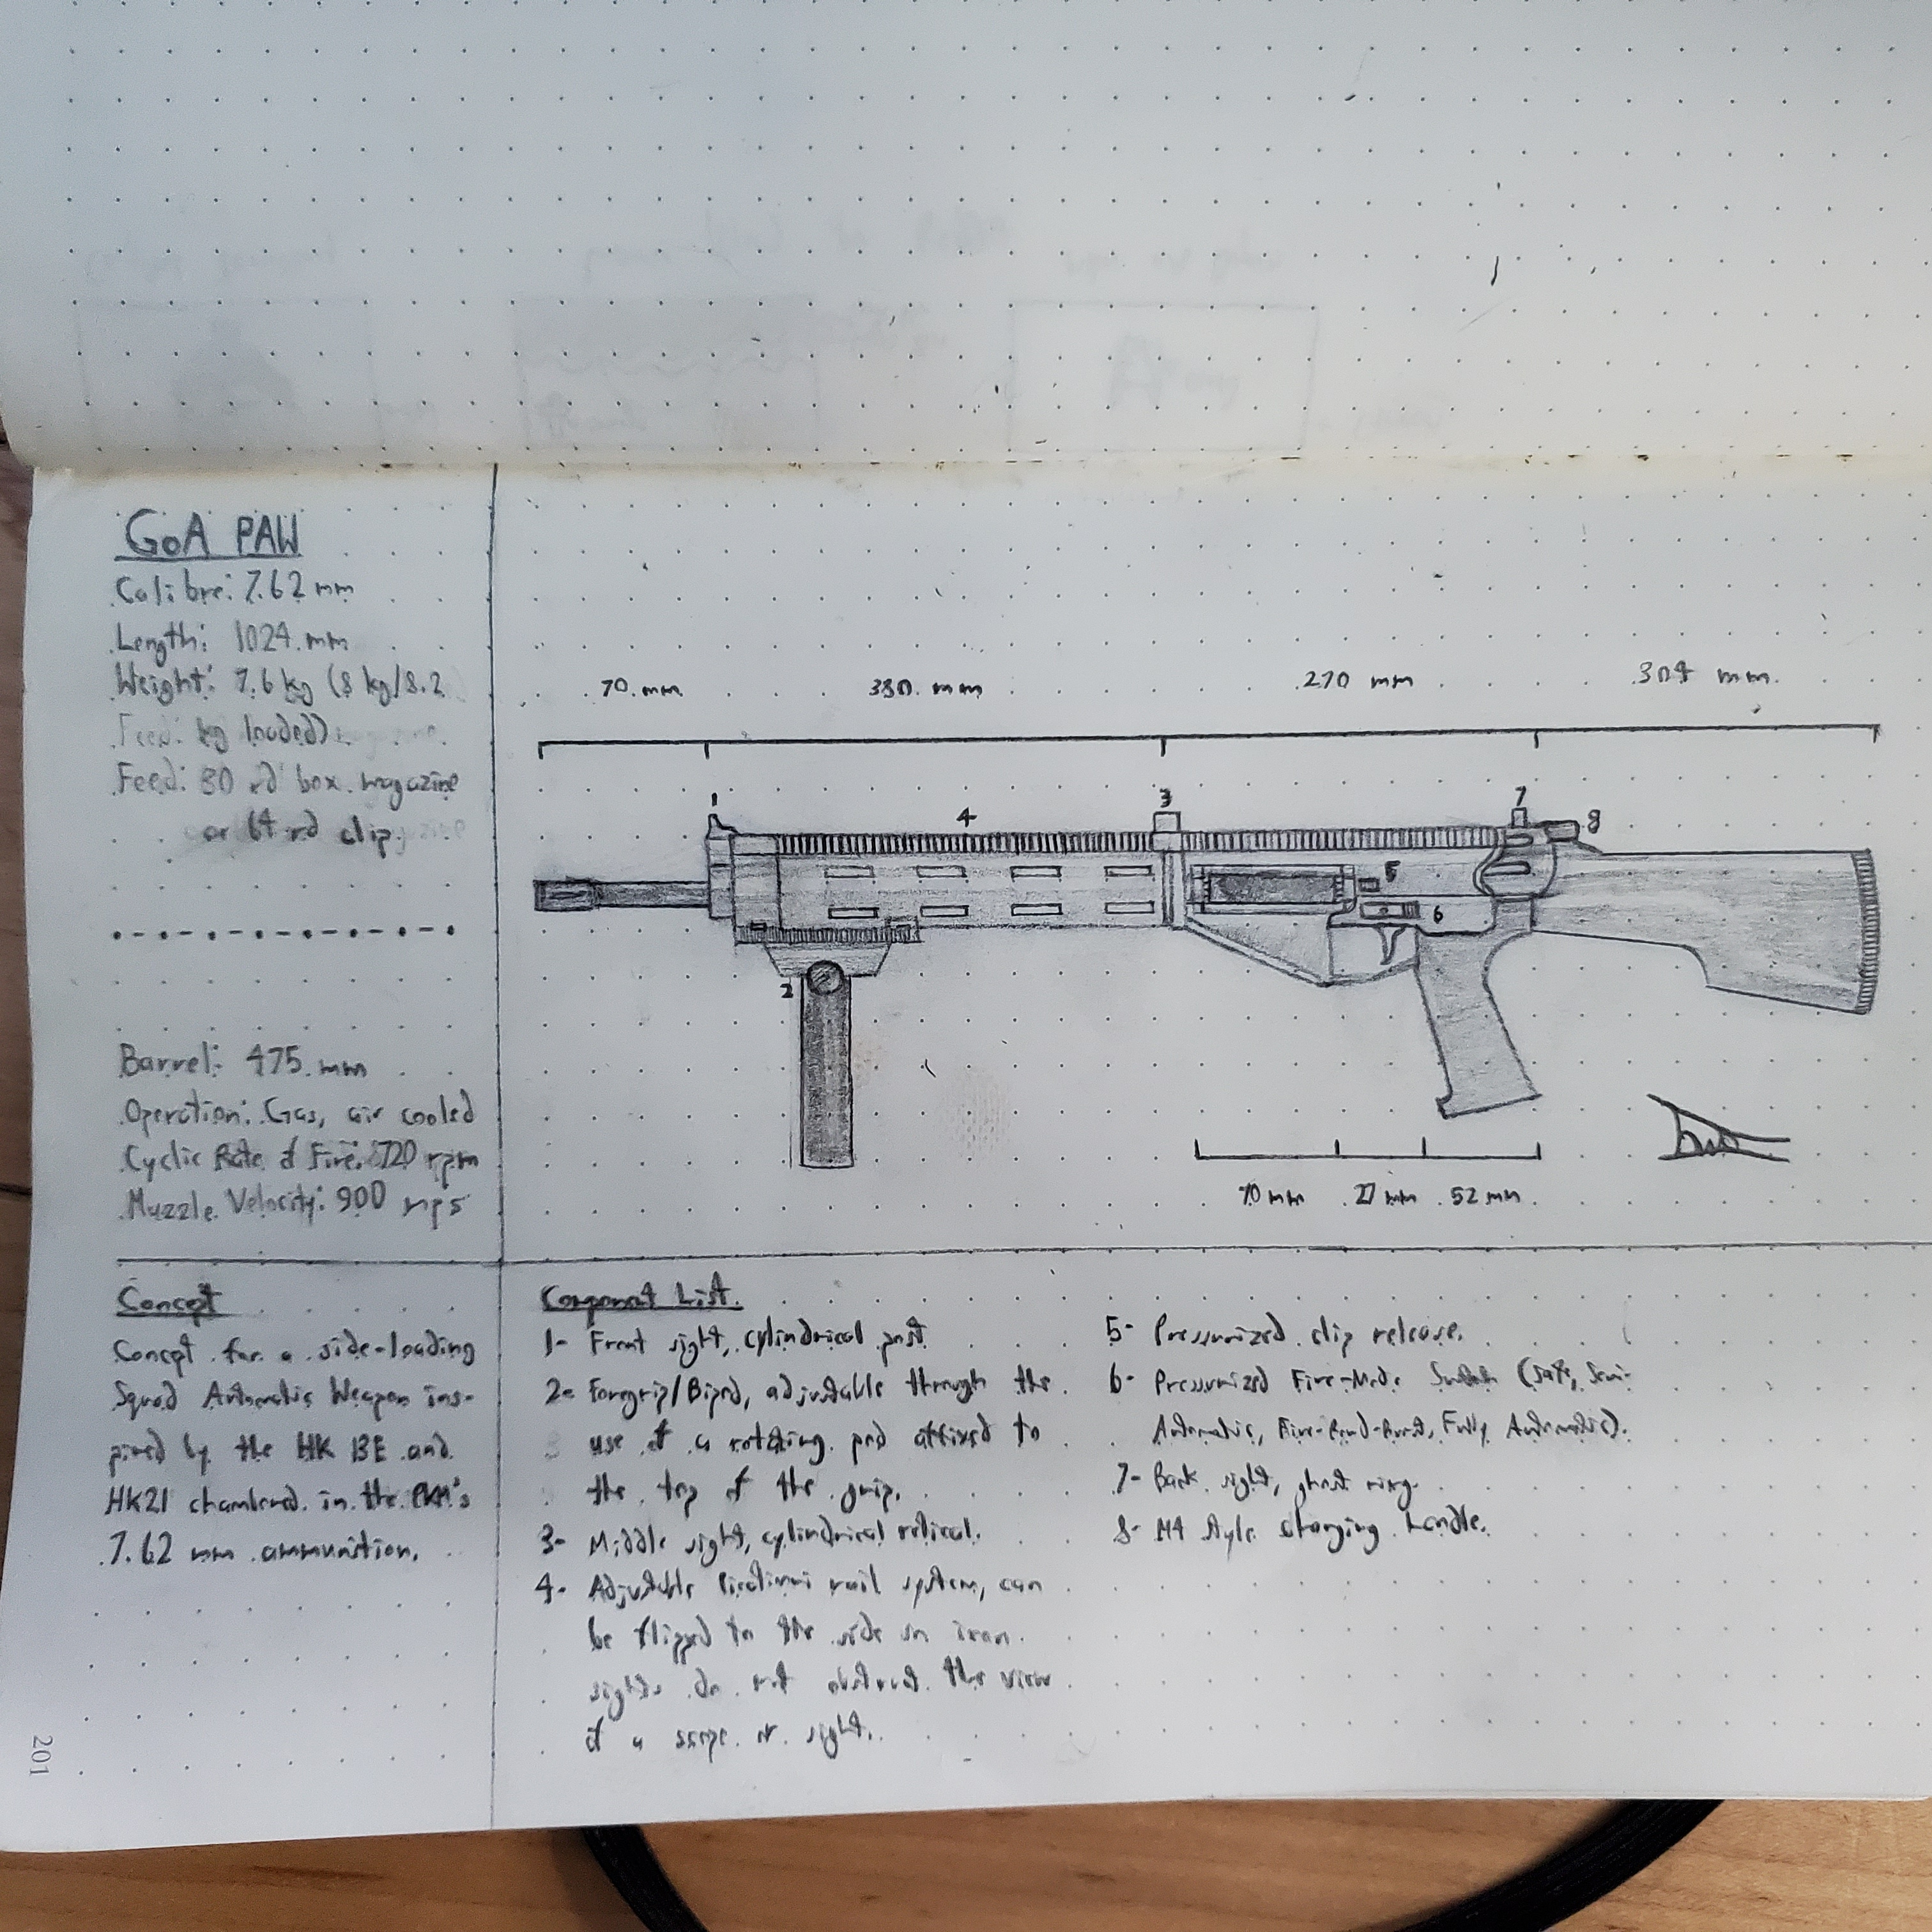 GoA PAW
Calibre: 7.62 mm
Length: 1024 mm
Weight: 7.6 kg (8 kg/8.2
kg loaded)
Feed: 30 rd box magazine
or 64 rd clip
Barrel: 475 mm
Operation: Gas, air cooled
Cyclic Rate of Fire: 720 rpm
Muzzle Velocity: 900 mps
70 mm 380 mm 270 mm 304 mm
1 3 7
4 8
5
6
2
70 mm 27 mm 52 mm
Concept
Concept for a side-loading
Squad Automatic Weapon ins-
pired by the HK 13E and
HK21 chambered in the PKM's
7.62 mm ammunition.
Component List
1- Front sight, cylindrical post
2- Foregrip/Bipod, adjustable through the
use of a rotating pad affixed to
the top of the grip.
3- Middle sight, cylindrical
4- Adjustable rail system, can
be flipped to the side so iron
sights do not obstruct the view
of a scope or sight.
5- Pressurized clip release.
6- Pressurized Fire-Mode Switch (Safe, Semi-
Automatic, Five-Round-Burst, Fully Automatic).
7- Back sight, ghost ring.
8- M4 Style charging handle.
201